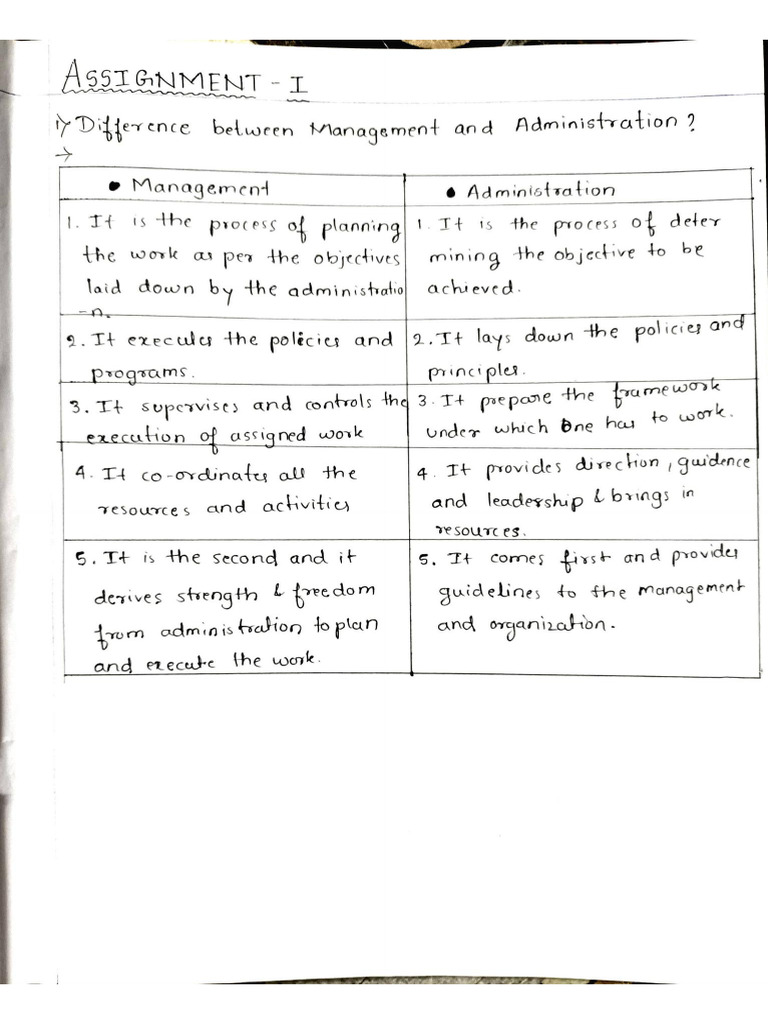 ASSIGNMENT - I
1) Difference between Management and Administration?
→
• Management
• Administration
1. It is the process of planning
the work as per the objectives
laid down by the administratio
-n.
1. It is the process of deter
mining the objective to be
achieved.
2. It executes the policies and
programs.
2. It lays down the policies and
principles.
3. It supervises and controls the
execution of assigned work
3. It prepare the framework
under which one has to work.
4. It co-ordinates all the
resources and activities
4. It provides direction, guidence
and leadership & brings in
resources.
5. It is the second and it
derives strength & freedom
from administration to plan
and execute the work.
5. It comes first and provides
guidelines to the management
and organization.